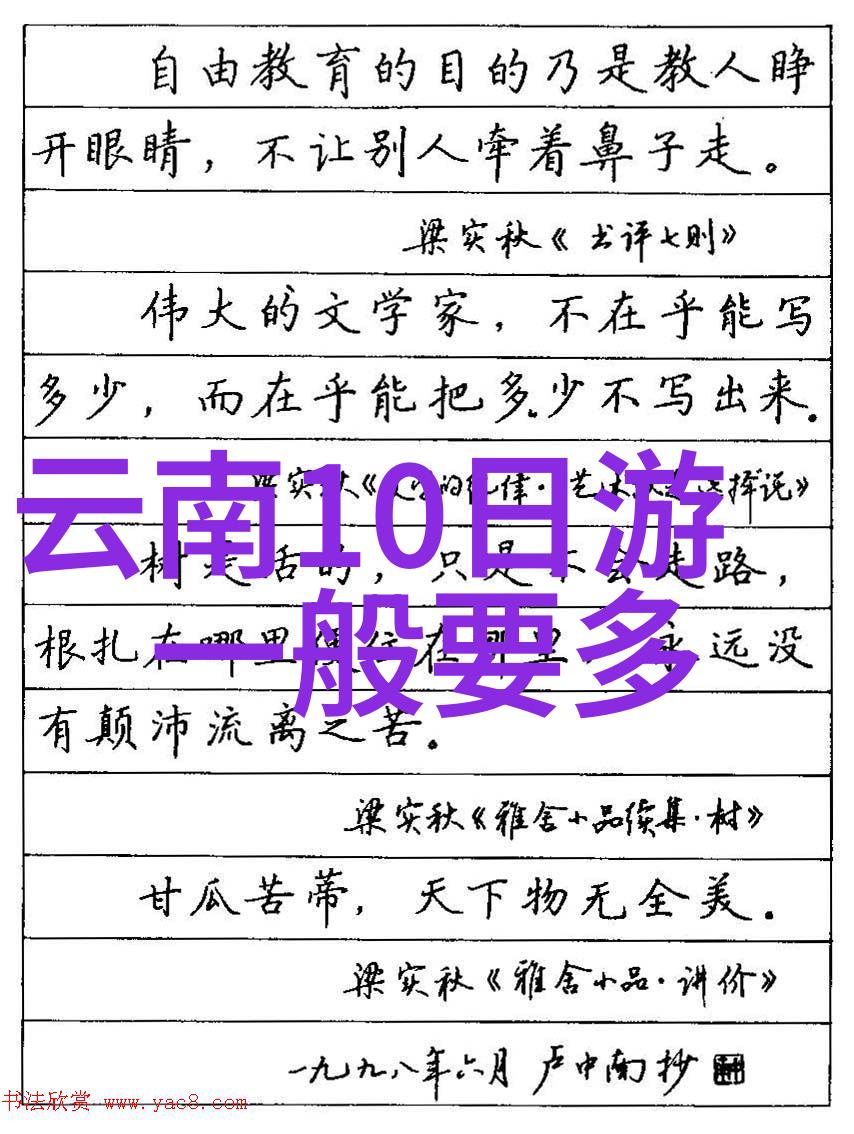 自由教育的目的乃是教人睁
开眼睛，不让别人牵着鼻子走。
梁实秋《书评七则》
伟大的文学家，不在乎能写
多少，而在乎能把多少不写出来。
云南10日游
树是活的，只是不会走路，
一般要多
根扎在哪里便住在那里，永远没
有颠沛流离之苦。
梁实秋《雅舍小品续集·树》
甘瓜苦蒂，天下物无全美。
梁实秋《雅舍小品·讲价》
一九九八年六月 卢中南抄
书法欣赏 www.yac8.com